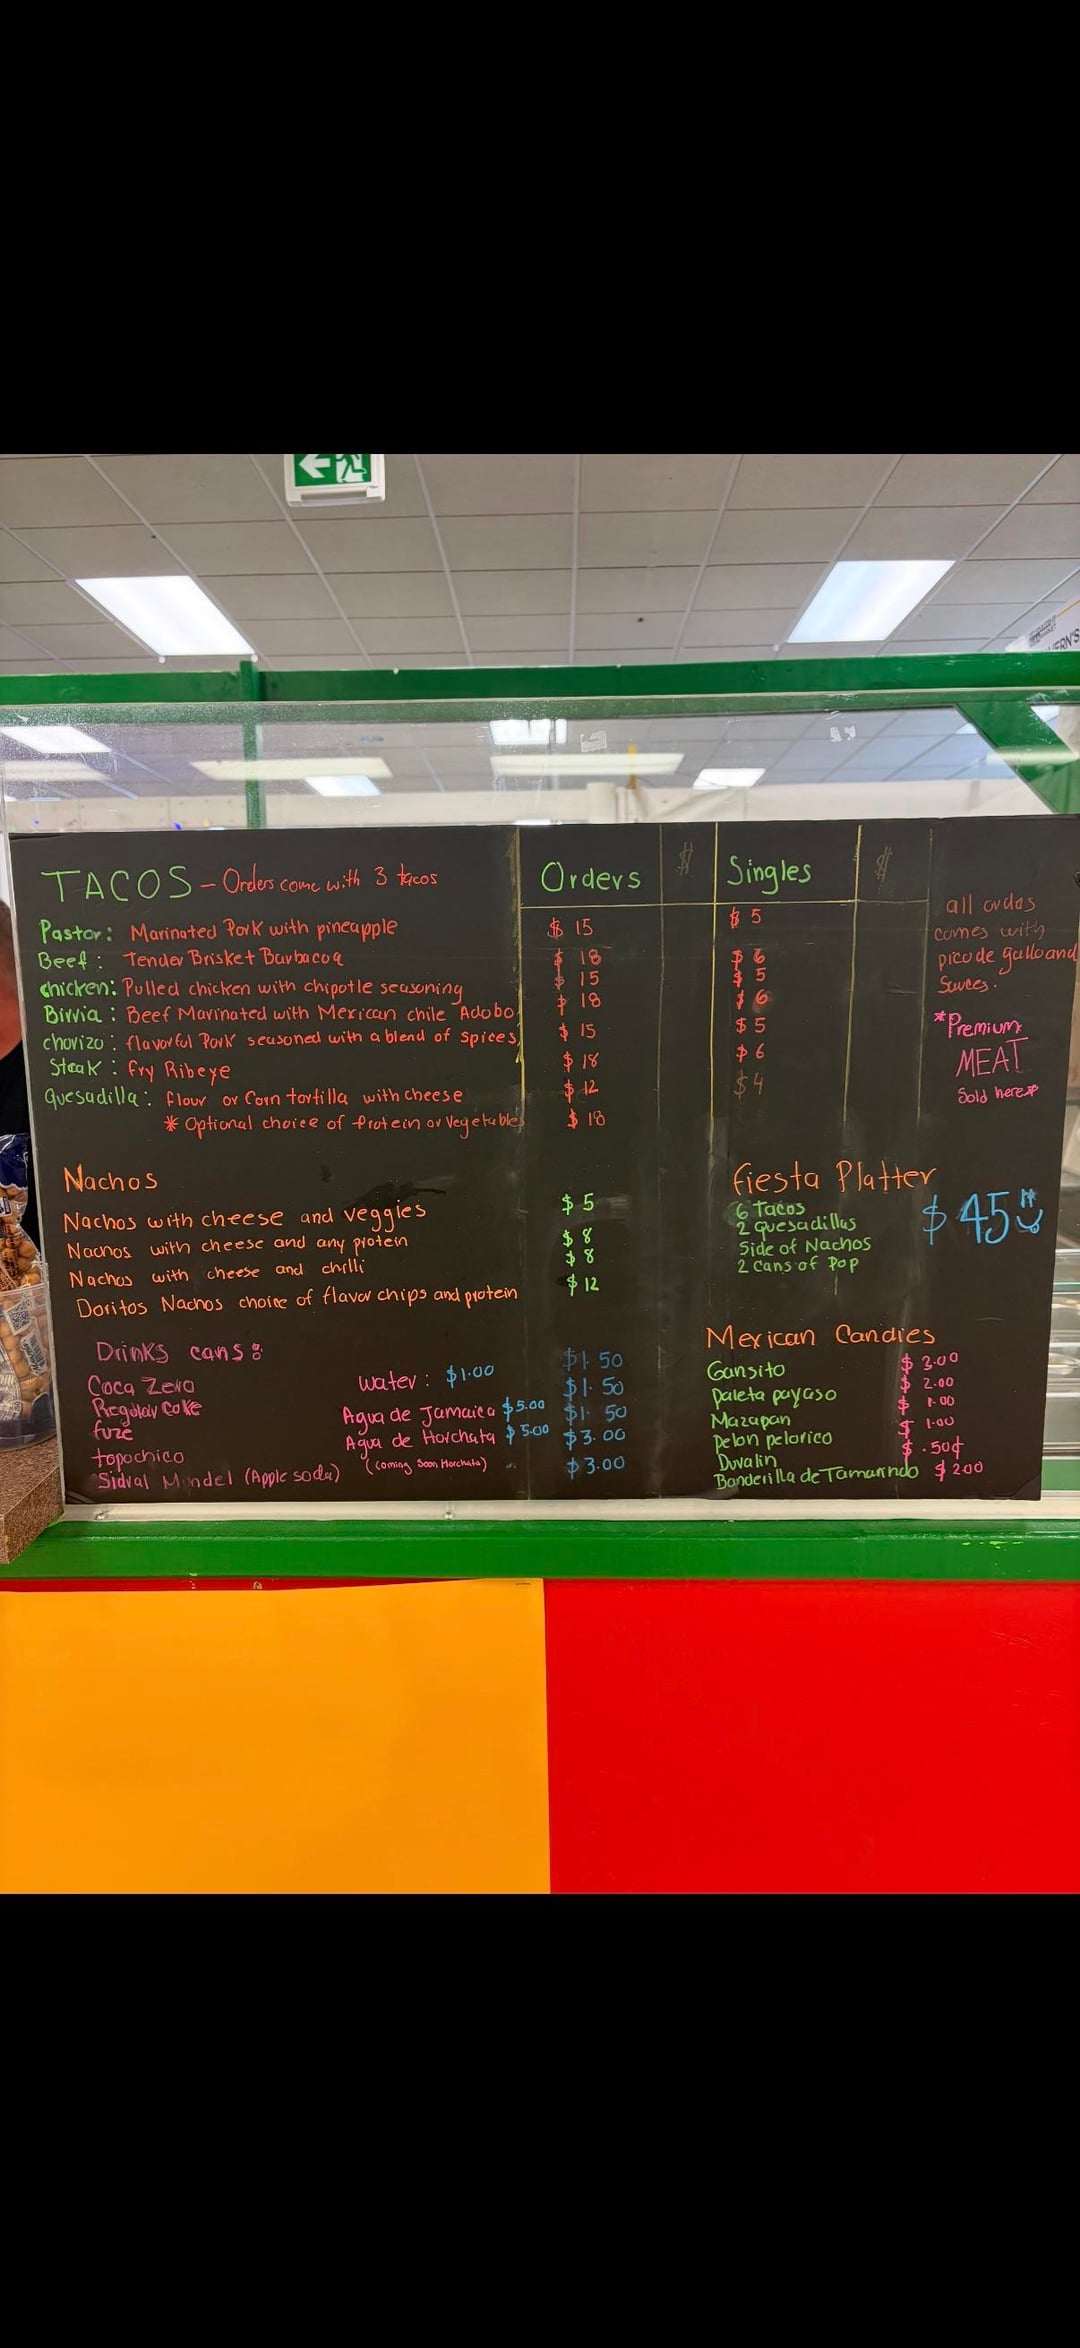 VERN'S
TACOS - Orders come with 3 tacos
Orders $ Singles $
Pastor: Marinated Pork with pineapple $ 15 $ 5
Beef: Tender Brisket Barbacoa $ 18 $ 6
chicken: Pulled chicken with chipotle seasoning $ 15 $ 5
Birria: Beef Marinated with Mexican chile Adobo $ 18 $ 6
chorizo: flavorful Pork seasoned with a blend of spices $ 15 $ 5
Steak: fry Ribeye $ 18 $ 6
Quesadilla: flour or Corn tortilla with cheese $ 12 $ 4
* Optional choice of Protein or Vegetables $ 18
all ordes
comes with
pico de gallo and
Sauces.
*Premium
MEAT
Sold here*
Nachos
Nachos with cheese and veggies $ 5
Nachos with cheese and any protein $ 8
Nachos with cheese and chilli $ 8
Doritos Nachos choice of flavor chips and protein $ 12
fiesta Platter
6 Tacos
2 quesadillas
Side of Nachos
2 cans of Pop
$ 45
Drinks cans:
Coca Zero $1.50
Regular Coke $1.50
fuze $1.50
topochico $3.00
Sidral Mundel (Apple soda) $3.00
water: $1.00
Agua de Jamaica $5.00
Agua de Horchata $5.00
(coming Soon Horchata)
Mexican Candies
Gansito $ 3.00
Paleta payaso $ 2.00
Mazapan $ 1.00
Pelon pelorico $ 1.00
Duvalin $ .50¢
Banderilla de Tamarindo $ 2.00